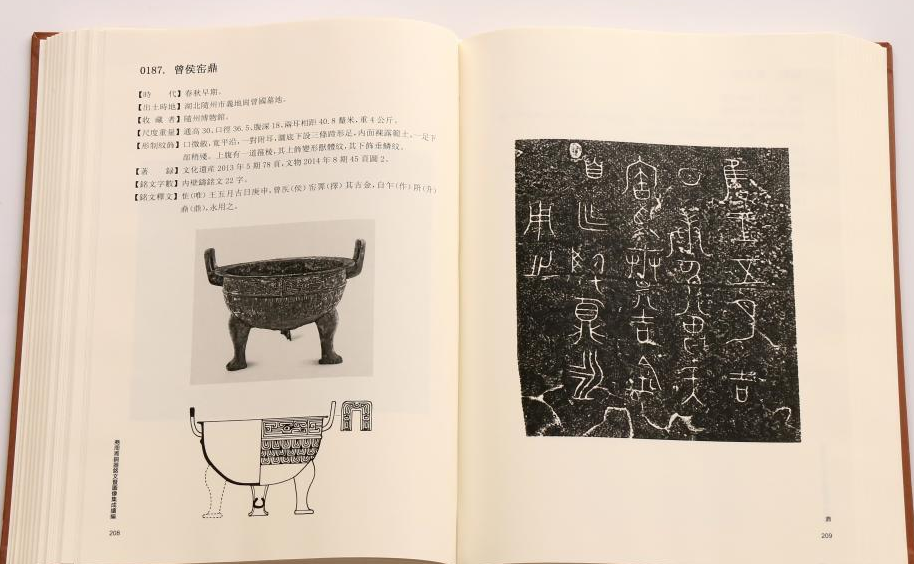 0187. 曾侯窑鼎
【時　　代】春秋早期。
【出土時地】湖北隨州市義地崗曾國墓地。
【收 藏 者】隨州博物館。
【尺度重量】通高30、口徑36.5、腹深18、兩耳相距40.8釐米，重4公斤。
【形制紋飾】口微斂，寬平沿，一對附耳，圜底下設三條蹄形足，內面裸露範土，一足下
部稍殘。上腹有一道箍棱，其上飾變形獸體紋，其下飾垂鱗紋。
【著　　録】文化遺産2013年5期78頁，文物2014年8期45頁圖2。
【銘文字數】內壁鑄銘文22字。
【銘文釋文】隹（唯）王五月吉日庚申，曾医（侯）窑羃（擇）其吉金，自乍（作）阩（升）
鼑（鼎），永用之。
商周青銅器銘文暨圖像集成續編
208
隹王五月吉
日庚申曾医
窑擇其吉金
自乍阩鼑永
用之
鼎
209